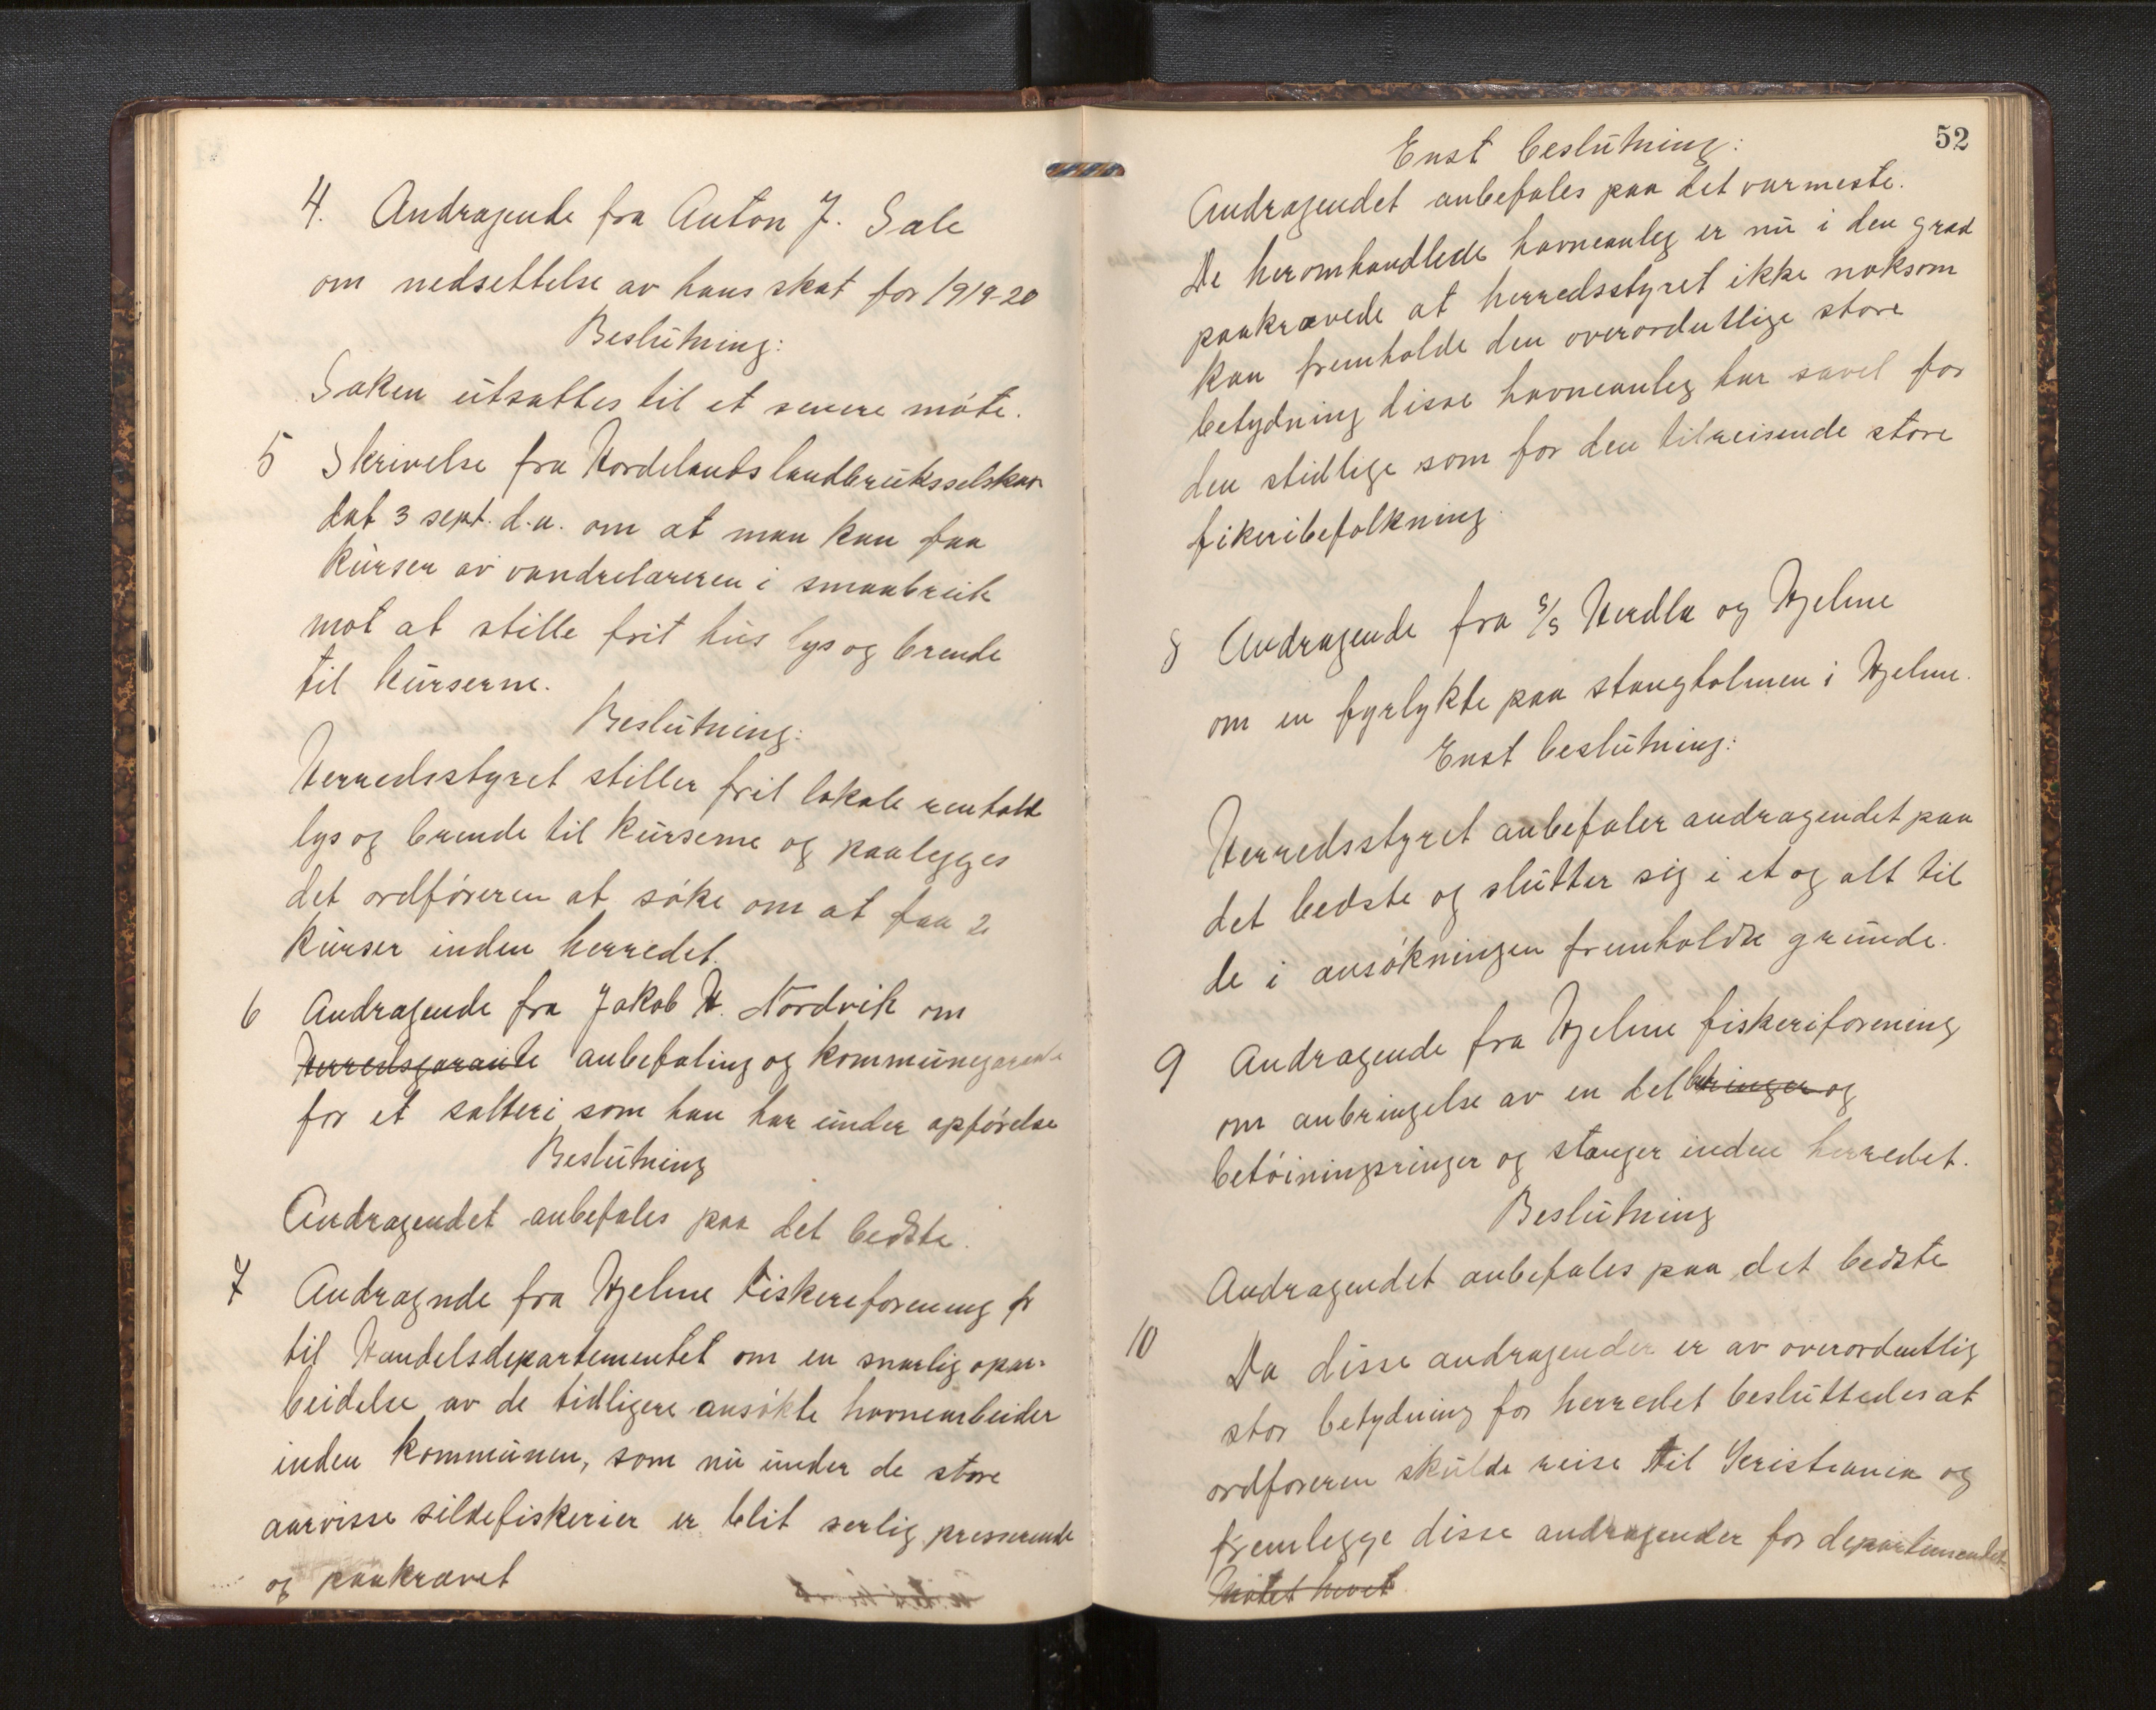 4. Andragende fra Anton J. Sale
om nedsettelse av hans skat for 1919-20
Beslutning:
Saken utsattes til et senere møte.
5 Skrivelse fra Hordelands landbruksselskap
dat 3 sept. d.a. om at man kan faa
kurser av vandrelæreren i smaabruk
mot at stille frit hus lys og brende
til kurserne.
Beslutning:
Herredsstyret stiller frit lokale renhold
lys og brende til kurserne og paalegges
det ordføreren at søke om at faa 2
kurser inden herredet.
6 Andragende fra Jakob H. Nordvik om
Herredsgarante anbefaling og kommunegarante
for et salteri som han har under opførelse
Beslutning
Andragendet anbefales paa det bedste.
7 Andragnde fra Hjelme Fiskereforening fr
til Handelsdepartementet om en snarlig opar-
beidelse av de tidligere ansøkte havnearbeider
inden kommunen, som nu under de store
aarvisse sildefiskerier er blit serlig presserende
og paakrævet
52
Enst beslutning:
Andragendet anbefales paa det varmeste.
De heromhandlede havneanleg er nu i den grad
paakrævede at herredsstyret ikke noksom
kan fremholde den overordutlige store
betydning disse havneanleg har savel for
den stidlige som for den tilreisende store
fikeribefolkning.
8 Andragende fra s/s Herdla og Hjelme
om en fyrlykte paa stangholmen i Hjelme.
Enst beslutning:
Herredsstyret anbefaler andragendet paa
det bedste og slutter sig i et og alt til
de i ansøkningen fremholdte grunde.
9 Andragende fra Hjelme fiskeriforening
om anbringelse av en del og
betøiningsringer og stanger inden herredet.
Beslutning
Andragendet anbefales paa det bedste
10 Da disse andragender er av overordentlig
stor betydning for herredet besluttedes at
ordføreren skulde reise til Kristiania og
fremlegge disse andragender for departementet
Møtet hevet.